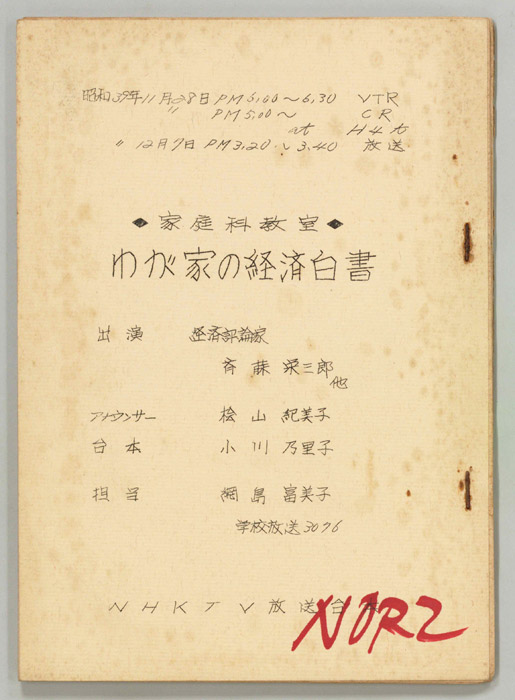 昭和39年11月28日 PM6,00～6,30 VTR
〃 PM5,00～ CR
at H4才
〃 12月7日 PM3,20～3,40 放送
◆家庭科教室◆
わが家の経済白書
出演 経済評論家
斉藤栄三郎
他
アナウンサー 桧山紀美子
台本 小川乃里子
担当 綱島富美子
学校放送3076
NHKTV放送台本
NORZ